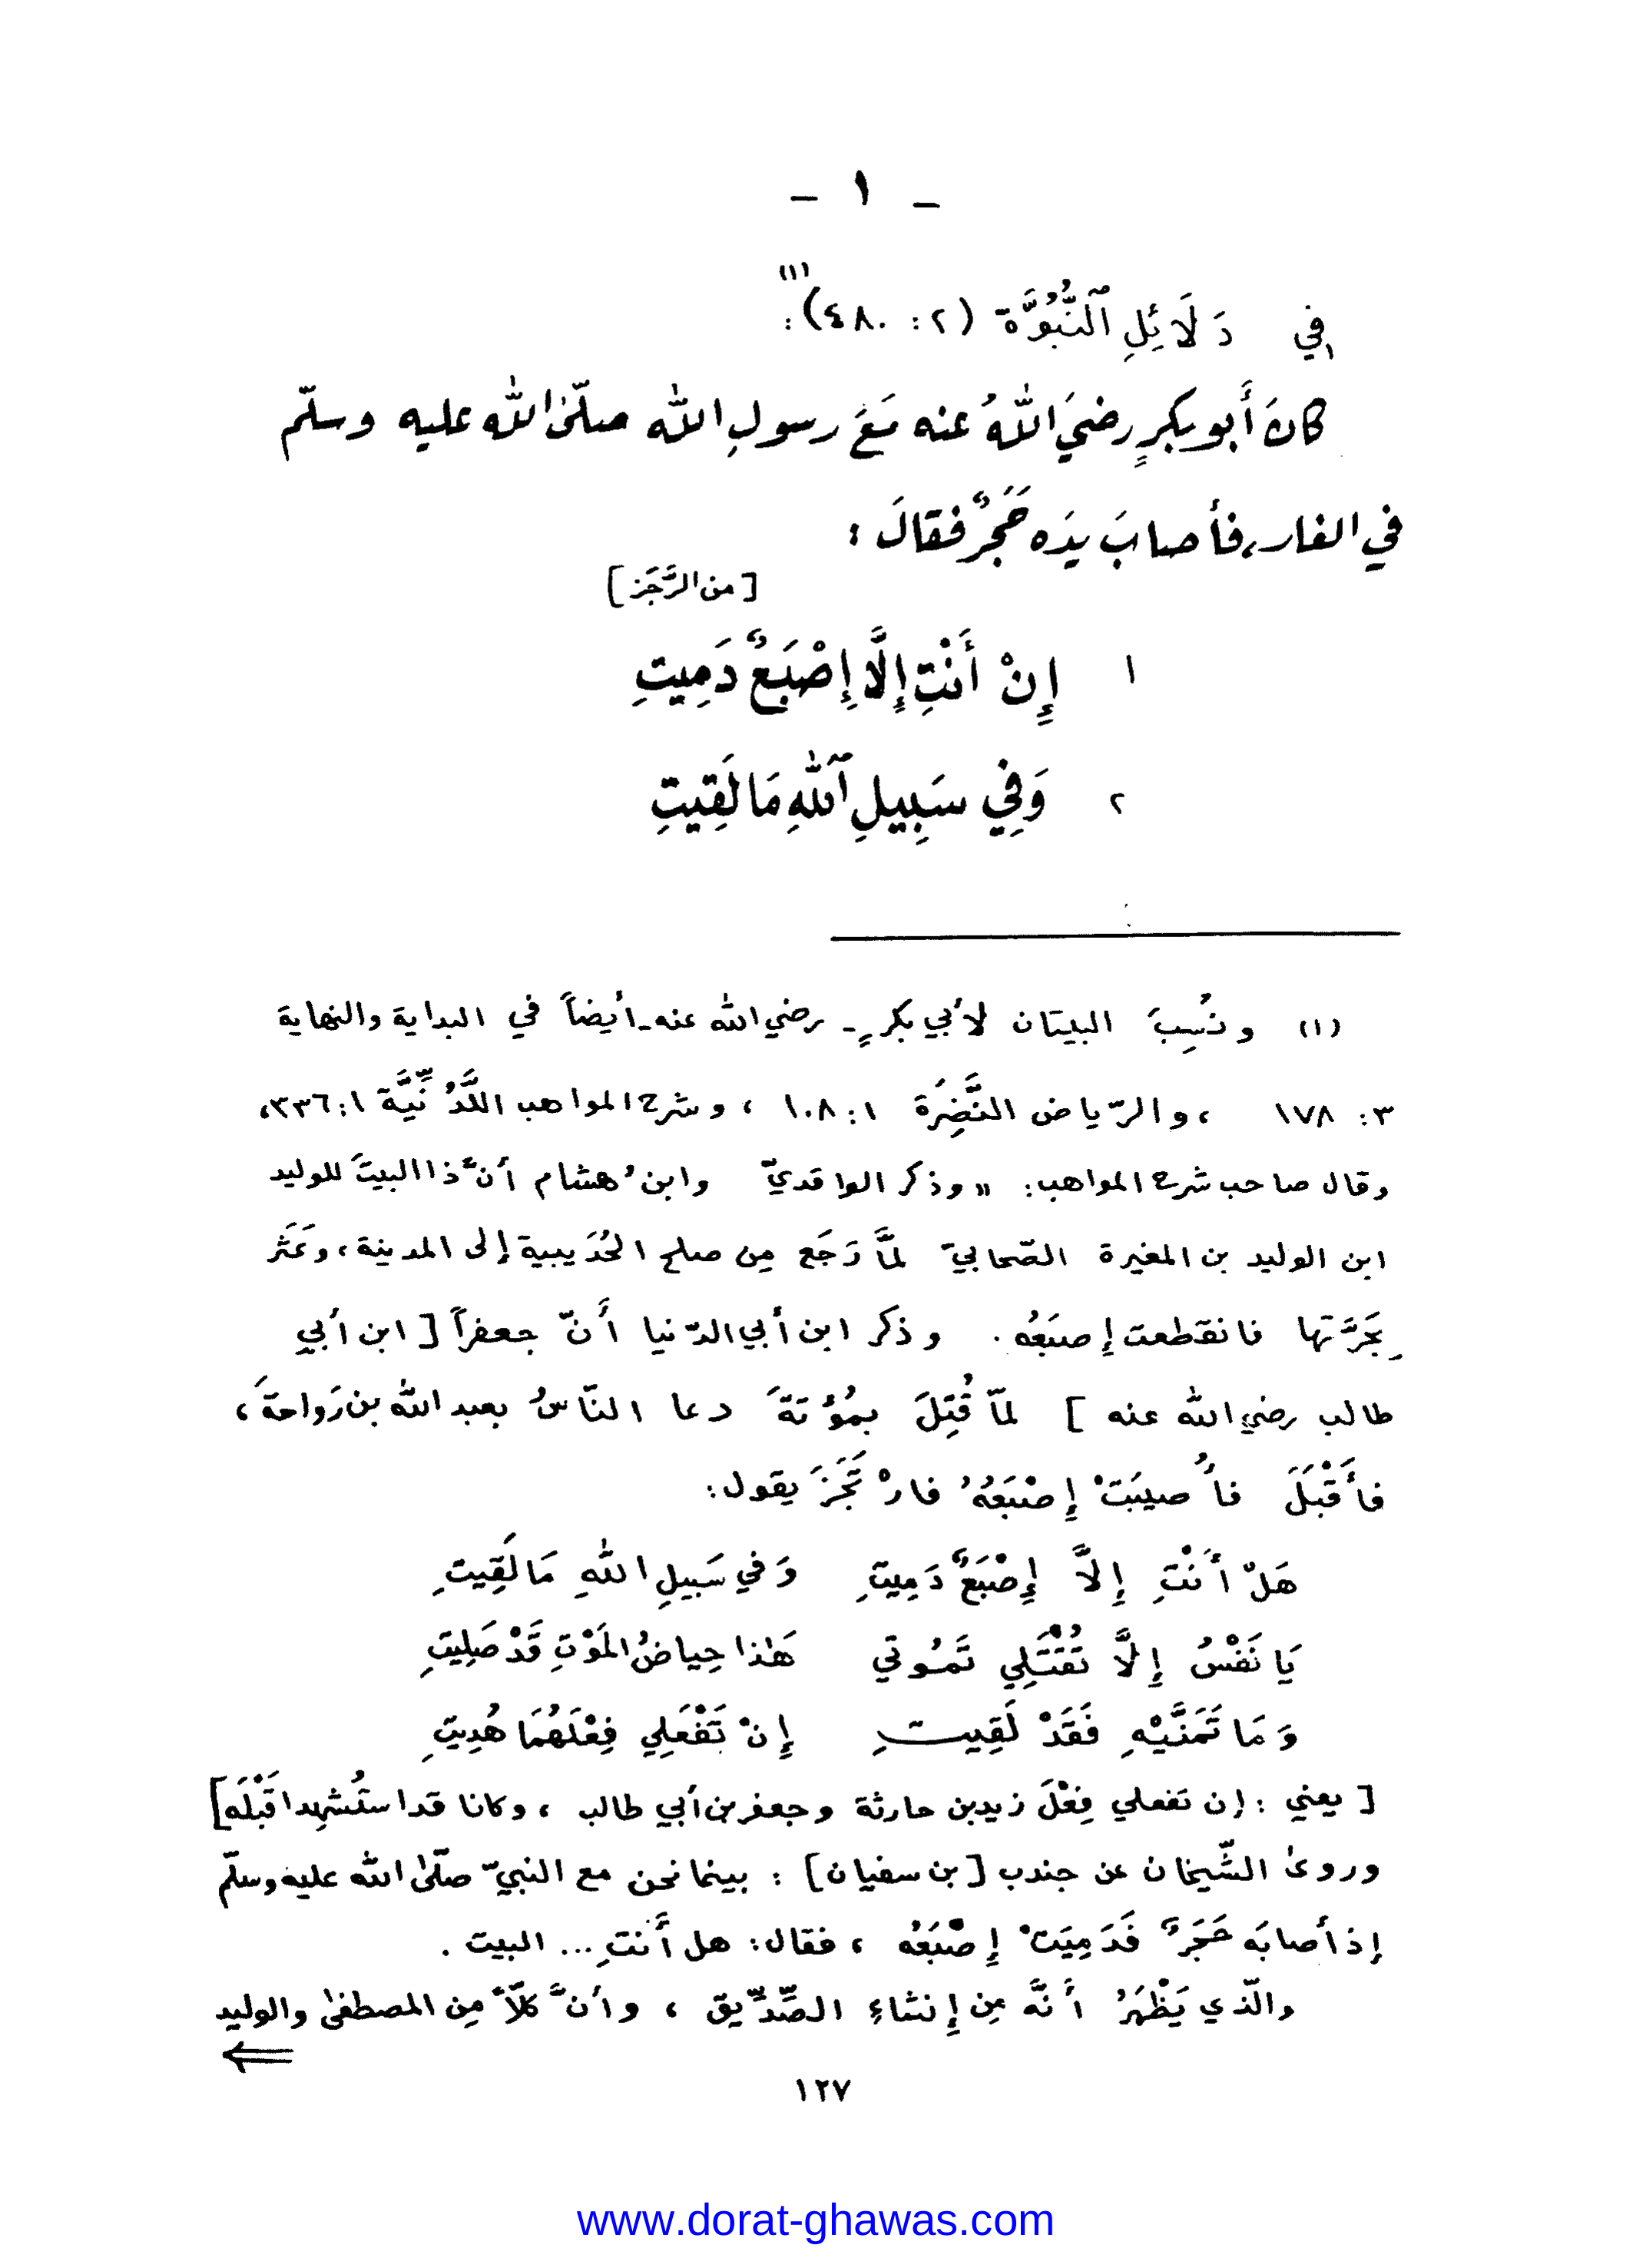 - ١ -
في دَلَائِلِ ٱلنُّبُوَّة (٢: ٤٨٠)(١):
كانَ أَبو بكرٍ رضيَ اللهُ عنه مَعَ رسولِ الله صلّىٰ الله عليه وسلّم
في الغار، فأصابَ يدَه حَجَرٌ فقالَ:
[من الرَّجَز]
١ إِنْ أَنْتِ إِلَّا إِصْبَعٌ دَمِيتِ
٢ وَفِي سَبِيلِ ٱللهِ مَا لَقِيتِ
(١) ونُسِبَ البيتان لأبي بكرٍ - رضي الله عنه - أيضاً في البداية والنهاية
٣: ١٧٨ ، والرّياض النَّضِرَة ١: ١٠٨ ، وشرح المواهب اللَّدُنِّيَّة ١: ٣٣٦،
وقال صاحب شرح المواهب: « وذكر الواقديّ وابنُ هشام أنَّ ذا البيتَ للوليد
ابن الوليد بن المغيرة الصّحابيّ لمَّا رَجَع مِن صلح الحُدَيبية إلى المدينة، وعَثَر
بِحَرَّتها فانقطعت إِصبَعُه. وذكر ابن أبي الدّنيا أَنّ جعفراً [ابن أبي
طالب رضي الله عنه] لمّا قُتِلَ بمُؤْتةَ دعا النّاسُ بعبد الله بن رَواحةَ،
فأَقْبَلَ فأُصيبَتْ إِصْبَعُهُ فارْتَجَزَ يقول:
هَلْ أَنْتِ إِلاَّ إِصْبَعٌ دَمِيتِ وَفي سَبيلِ اللهِ مَا لَقِيتِ
يَا نَفْسُ إِلاَّ تُقْتَلِي تَمُوتي هَٰذا حِياضُ المَوْتِ قَدْ صَلِيتِ
وَمَا تَمَنَّيْتِ فَقَدْ لَقِيتِ إِنْ تَفْعَلِي فِعْلَهُمَا هُدِيتِ
[يعني: إن تفعلي فِعْلَ زيد بن حارثة وجعفر بن أبي طالب ، وكانا قد استُشهِدا قَبْلَه]
وروىٰ الشّيخان عن جندب [بن سفيان] : بينما نحن مع النبيّ صلّىٰ الله عليه وسلّم
إذ أصابَه حَجَرٌ فَدَمِيَتْ إِصْبَعُه ، فقال: هل أَنتِ ... البيت .
والّذي يَظْهَرُ أَنَّه مِن إِنشاءِ الصِّدِّيق ، وأنَّ كلاًّ مِن المصطفىٰ والوليد
⇐
١٢٧
www.dorat-ghawas.com